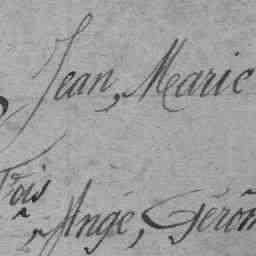 Jean, Marie
fois
Ange, Gérôm